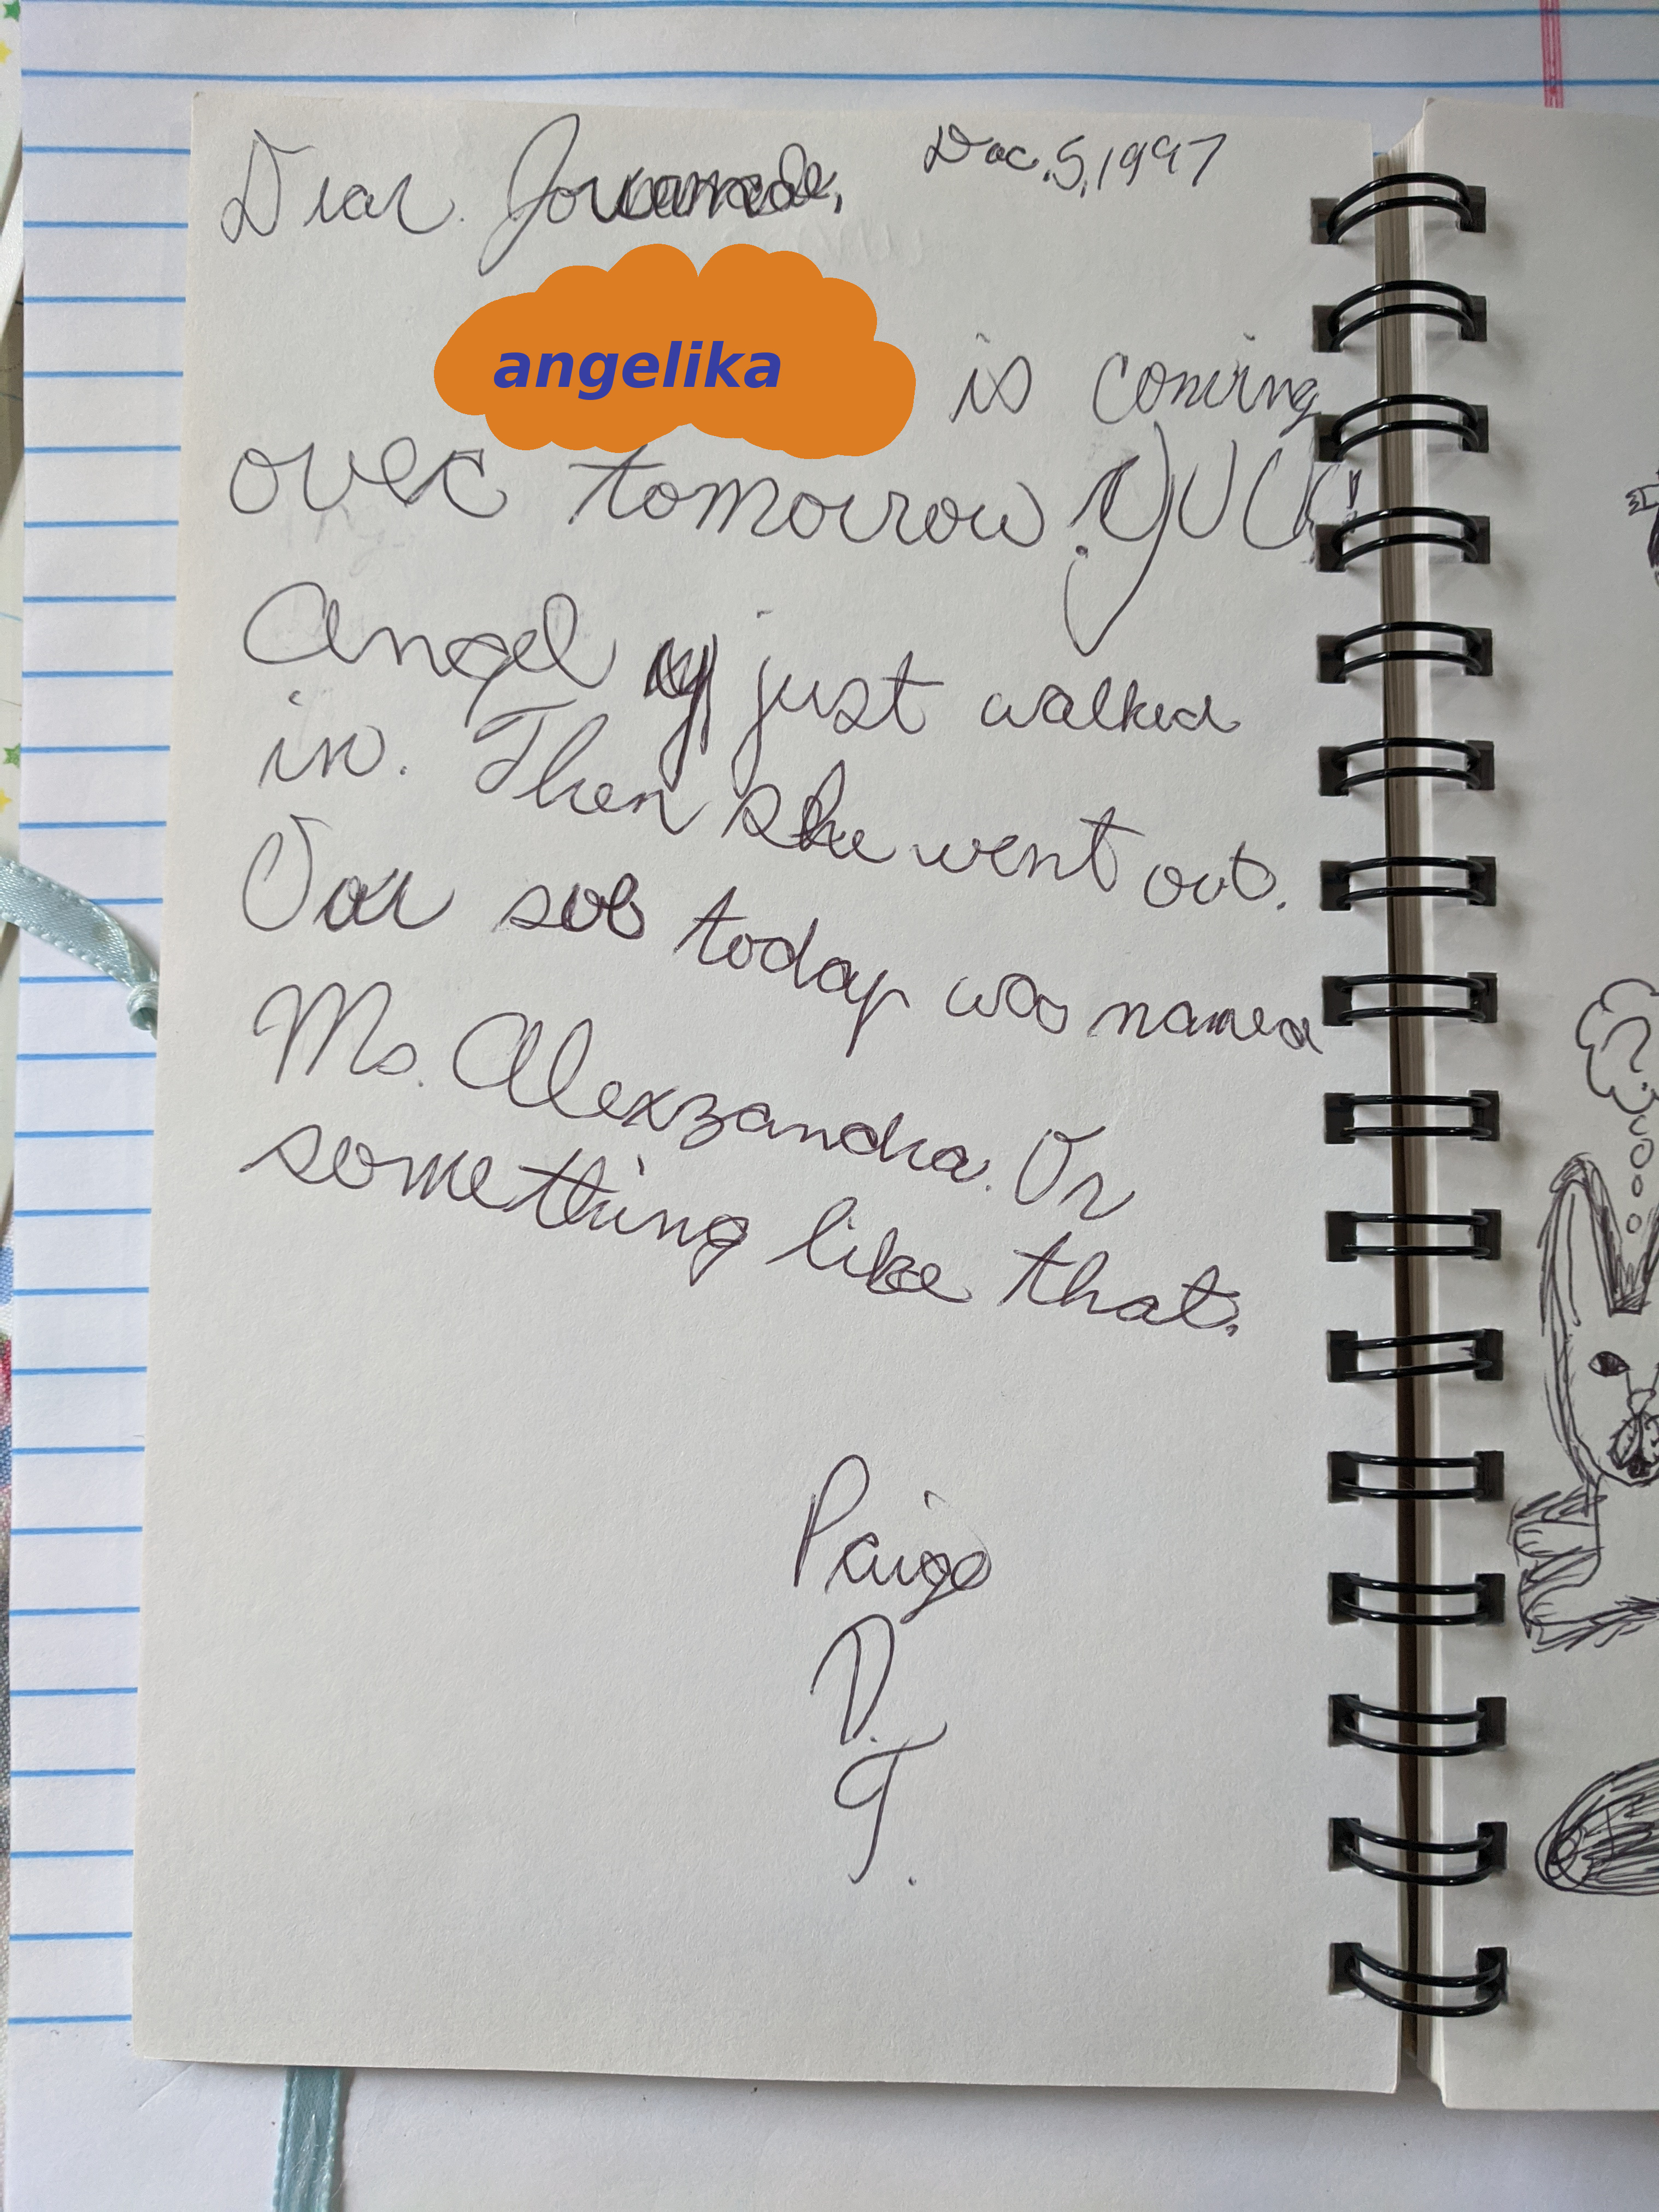 Dear Dec. 5, 1997
angelika is coming
over tomorrow. YUCK!
Angel just walked
in. Then she went out.
Our sub today was named
Ms. Alexzandra. Or
something like that.
Paige
D.
T.
?